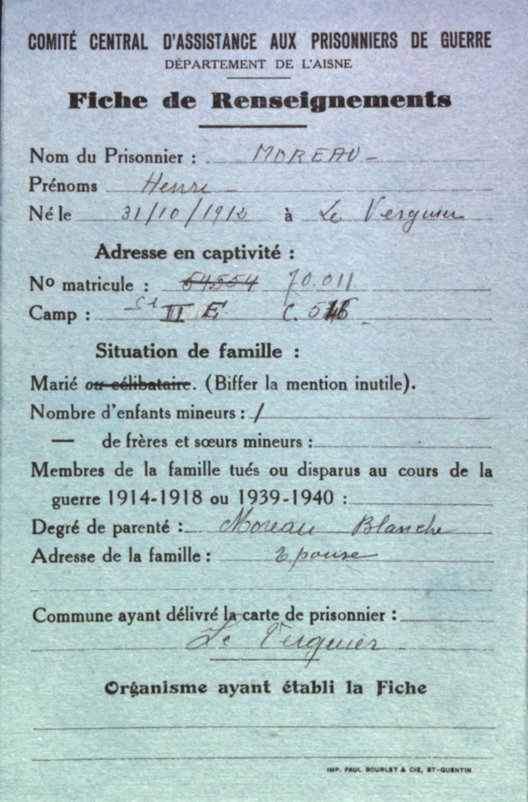 COMITÉ CENTRAL D'ASSISTANCE AUX PRISONNIERS DE GUERRE
DÉPARTEMENT DE L'AISNE
Fiche de Renseignements
Nom du Prisonnier : MOREAU -
Prénoms Henri -
Né le 31/10/1912 à Le Verguier
Adresse en captivité :
No matricule : 54554 70.011
Camp : II E C.
Situation de famille :
Marié ou célibataire. (Biffer la mention inutile).
Nombre d'enfants mineurs : 1
— de frères et sœurs mineurs :
Membres de la famille tués ou disparus au cours de la
guerre 1914-1918 ou 1939-1940 :
Degré de parenté : Moreau Blanche
Adresse de la famille : Epouse
Commune ayant délivré la carte de prisonnier :
Le Verguier
Organisme ayant établi la Fiche
IMP. PAUL BOURLET & CIE, ST-QUENTIN